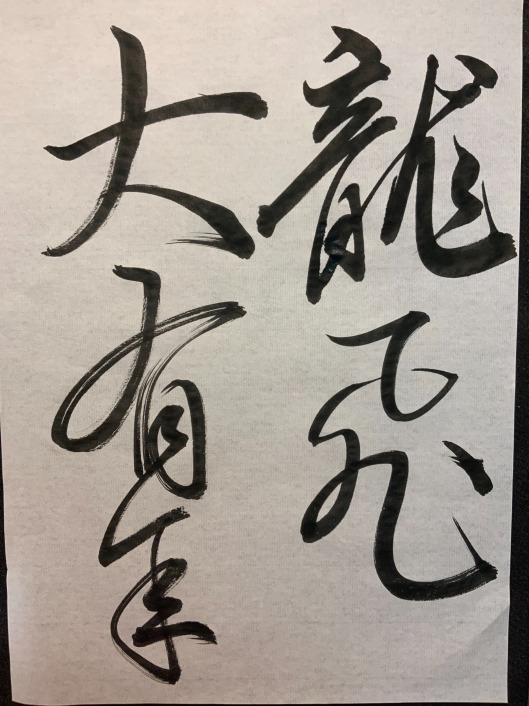 龍飛
大有年